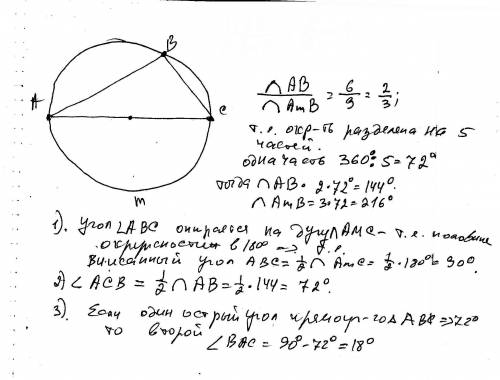 B
A
C
m
∩AB / ∩AmB = 6/9 = 2/3;
т.е. окр-ть разделена на 5
частей.
одна часть 360°:5=72°
тогда ∩AB = 2·72°=144°.
∩AmB=3·72=216°
1). Угол ∠ABC опирается на дугу ∩AMC – т.е. половине
окружностии в 180° → т.е.
вписанный угол ABC = 1/2 ∩AmC = 1/2·180° = 90°.
2) ∠ACB = 1/2 ∩AB = 1/2·144 = 72°.
3). Если один острый угол прямоуг-гол ABC = 72°
то второй
∠BAC = 90°-72°=18°